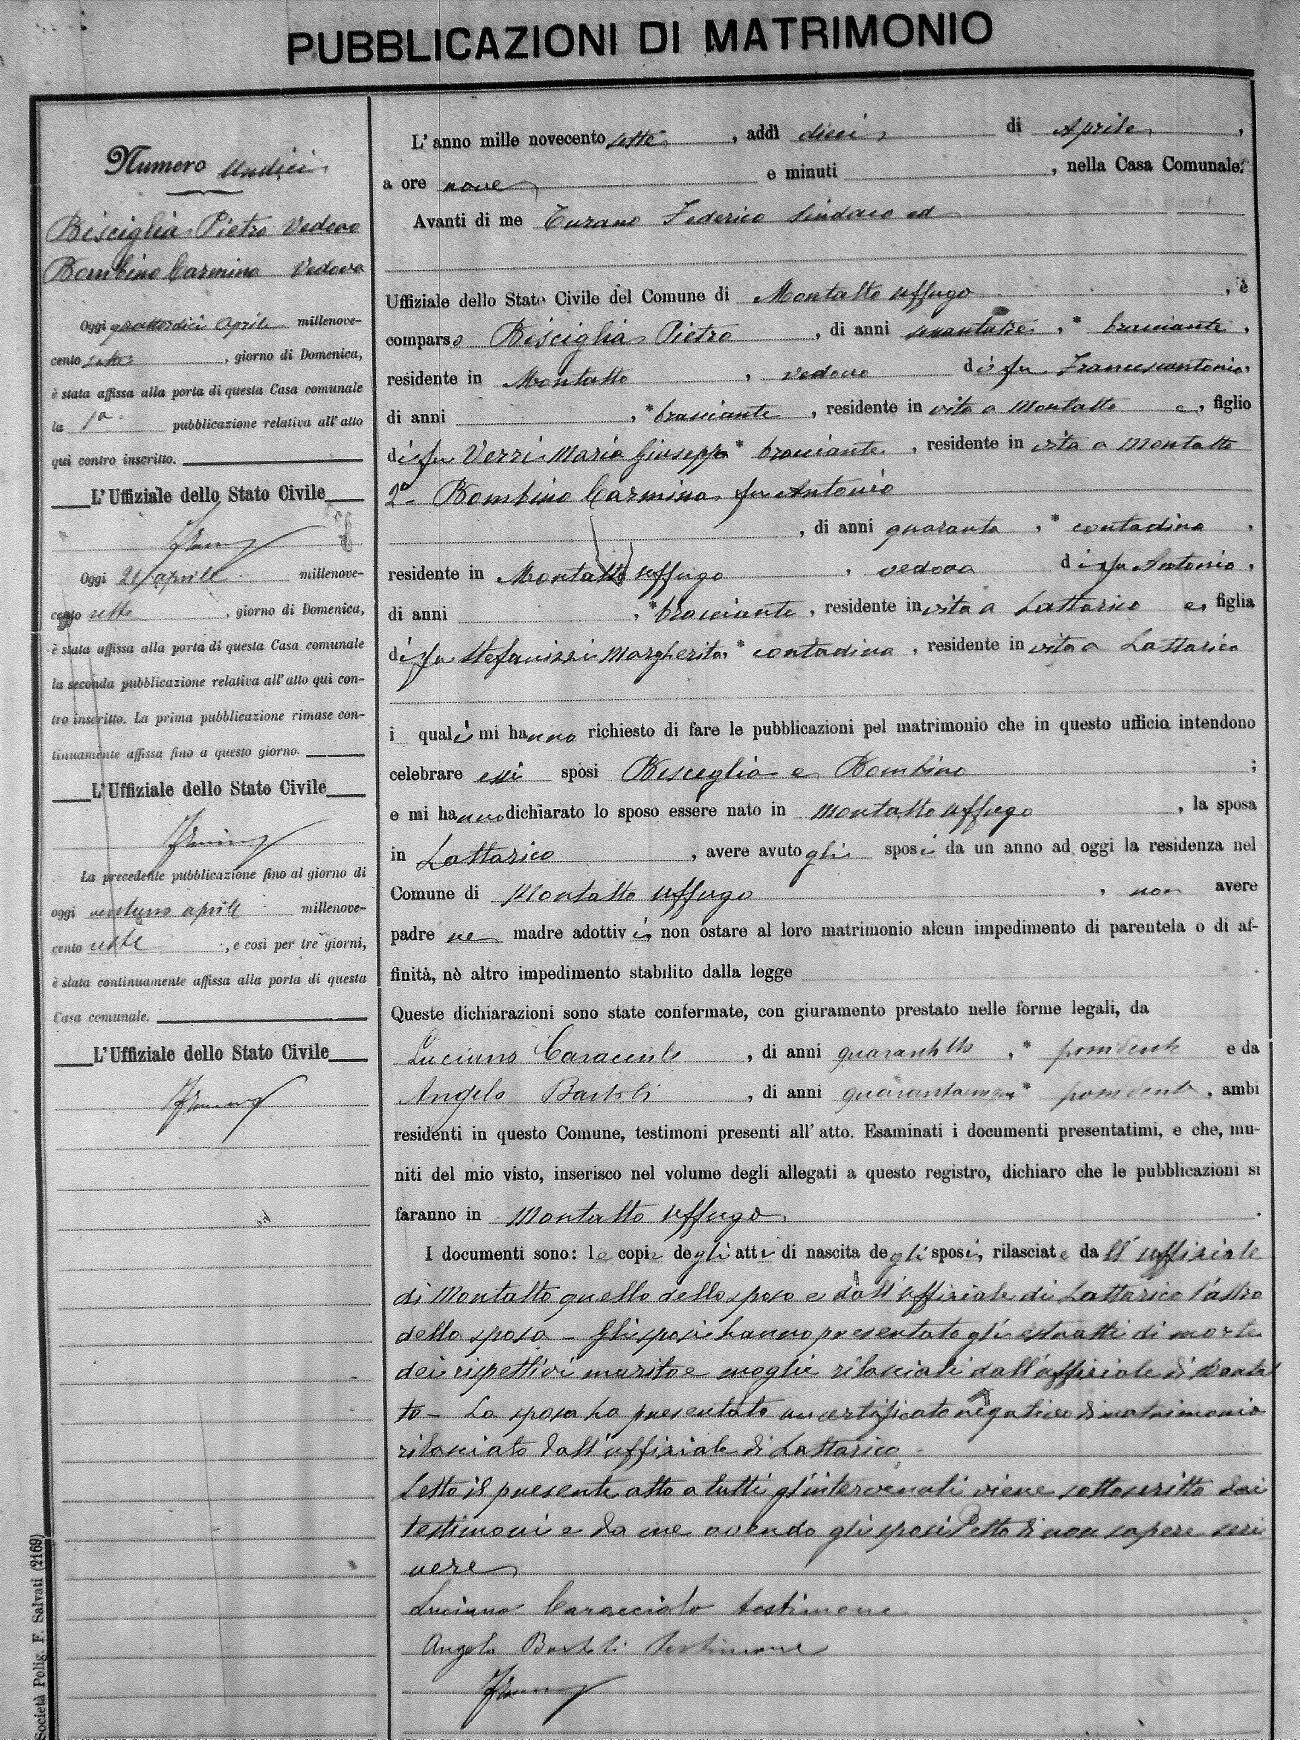 PUBBLICAZIONI DI MATRIMONIO
Numero Undici
Bisciglia Pietro Vedovo
Bombino Carmina Vedova
Oggi quattordici Aprile millenove-
cento sette, giorno di Domenica,
è stata affissa alla porta di questa Casa comunale
la 1a pubblicazione relativa all'atto
qui contro inscritto.
L'Uffiziale dello Stato Civile
Oggi 21 aprile millenove-
cento sette, giorno di Domenica,
è stata affissa alla porta di questa Casa comunale
la seconda pubblicazione relativa all'atto qui con-
tro inscritto. La prima pubblicazione rimase con-
tinuamente affissa fino a questo giorno.
L'Uffiziale dello Stato Civile
La precedente pubblicazione fino al giorno di
oggi ventuno aprile millenove-
cento sette, e così per tre giorni,
è stata continuamente affissa alla porta di questa
Casa comunale.
L'Uffiziale dello Stato Civile
Società Polig. F. Salvati (2169)
L'anno mille novecento sette, addì dieci di Aprile,
a ore nove e minuti , nella Casa Comunale.
Avanti di me Turano Federico Sindaco ed
Uffiziale dello Stato Civile del Comune di Montalto Uffugo, è
comparso Bisciglia Pietro, di anni , * bracciante,
residente in Montalto, vedovo di fu Francescantonio,
di anni , * bracciante, residente in vita a Montalto e, figlio
di fu Verri Maria Giuseppa * bracciante, residente in vita a Montalto
2º- Bombino Carmina fu Antonio
, di anni quaranta, * contadina,
residente in Montalto Uffugo, vedova di fu Antonio,
di anni , * bracciante, residente in vita a Lattarico e, figlia
di fu Stefanizzi Margherita, * contadina, residente in vita a Lattarico
i quali mi hanno richiesto di fare le pubblicazioni pel matrimonio che in questo ufficio intendono
celebrare essi sposi Bisceglia e Bombino ;
e mi hanno dichiarato lo sposo essere nato in Montalto Uffugo, la sposa
in Lattarico, avere avuto gli sposi da un anno ad oggi la residenza nel
Comune di Montalto Uffugo, non avere
padre ne madre adottivi, non ostare al loro matrimonio alcun impedimento di parentela o di af-
finità, nè altro impedimento stabilito dalla legge
Queste dichiarazioni sono state confermate, con giuramento prestato nelle forme legali, da
Luciano Caracciolo, di anni , * possidente e da
Angelo Bartoli, di anni , * possidente, ambi
residenti in questo Comune, testimoni presenti all'atto. Esaminati i documenti presentatimi, e che, mu-
niti del mio visto, inserisco nel volume degli allegati a questo registro, dichiaro che le pubblicazioni si
faranno in Montalto Uffugo.
I documenti sono: le copie degli atti di nascita degli sposi, rilasciate dall'uffiziale
di Montalto quello dello sposo e dall'uffiziale di Lattarico l'altro
della sposa - Gli sposi hanno presentato gli estratti di morte
dei rispettivi marito e moglie rilasciati dall'uffiziale di Montal
to - La sposa ha presentato un certificato negativo di matrimonio
rilasciato dall'uffiziale di Lattarico -
Letto il presente atto a tutti gl'intervenuti viene sottoscritto dai
testimoni e da me avendo gli sposi detto di non sapere scri
vere
Luciano Caracciolo testimone
Angelo Bartoli testimone